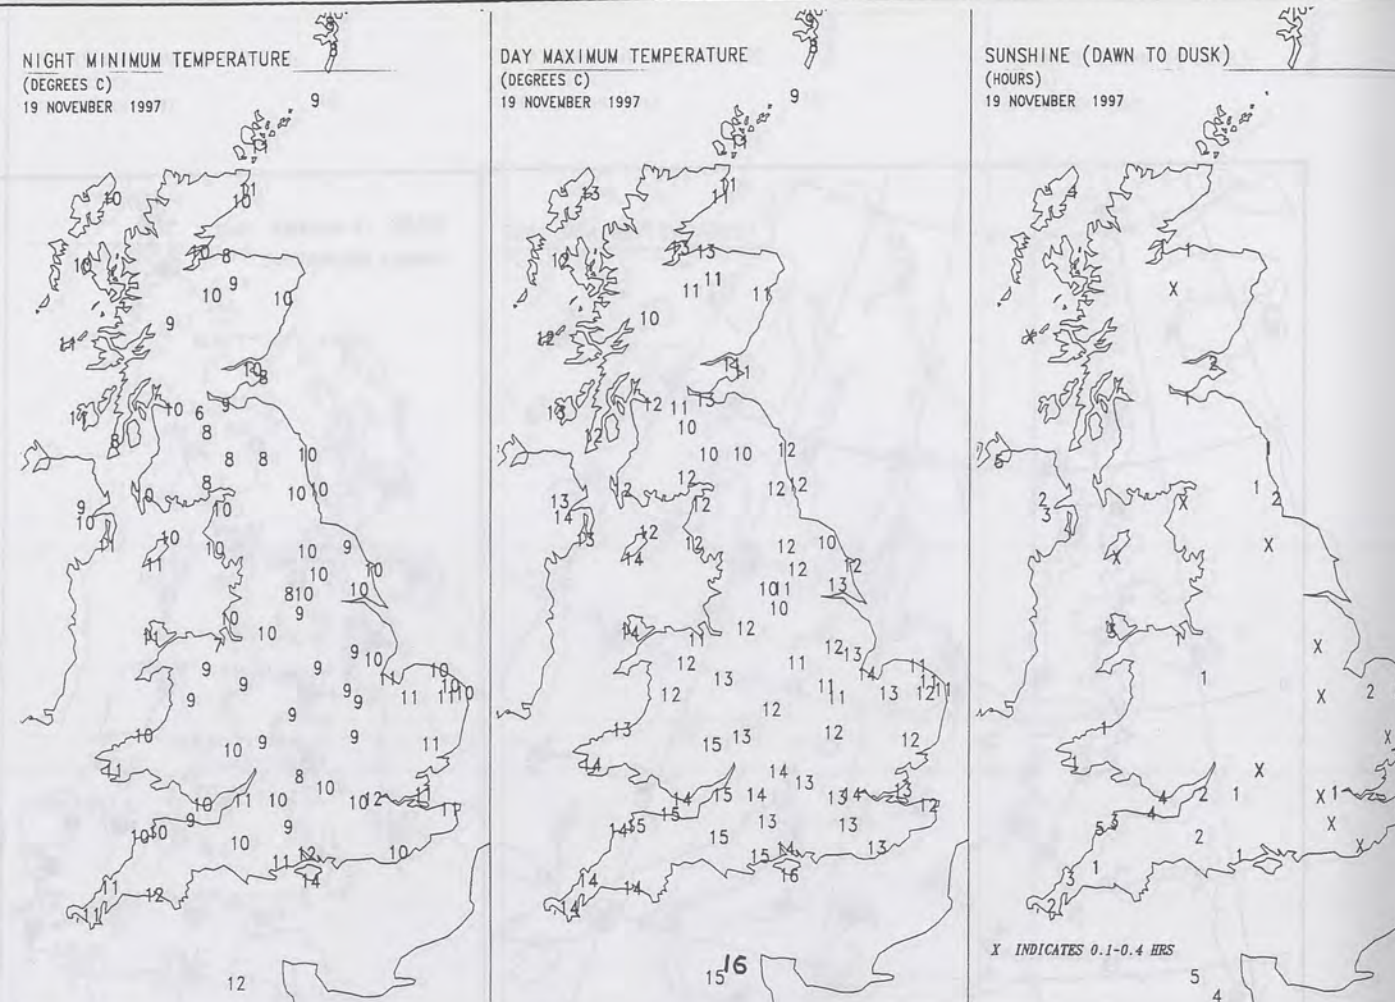 NIGHT MINIMUM TEMPERATURE
(DEGREES C)
19 NOVEMBER 1997
9
10
11
10
10
8
9
10
10
9
11
8
10
9
6
8
8
8
8
8
10
10
10
10
9
10
11
10
11
10
10
9
10
10
10
8 10
9
10
10
11
9
9
10
10
9
9
9
11
10
11
10
9
9
9
10
10
9
9
11
11
8
10
10
11
10
10
12
11
11
9
9
10
10
12
11
10
14
11
12
11
12
DAY MAXIMUM TEMPERATURE
(DEGREES C)
19 NOVEMBER 1997
9
13
11
11
13
11
11
11
10
12
11
13
12
11
10
12
10
10
12
12
12
12
12
12
13
14
13
12
14
12
12
10
12
12
10 11
13
10
12
14
11
12
13
14
11
12
13
11
11
13
12
11
12
12
13
15
13
12
12
14
14
13
14
15
14
13
14
13
12
15
14
15
13
13
15
15
14
13
16
14
14
14
15 16
SUNSHINE (DAWN TO DUSK)
(HOURS)
19 NOVEMBER 1997
4
1
X
X
2
1
2
3
1
2
X
X
X
1
X
1
X
2
1
X
1
X
4
2
1
X
1
5
3
4
X
2
1
X
3
1
2
X INDICATES 0.1-0.4 HRS
5
4